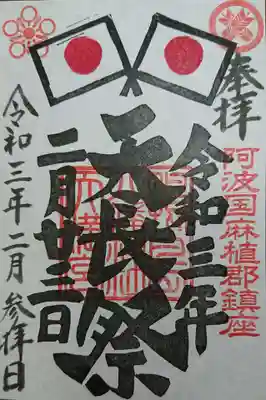 奉拝
阿波国麻植郡鎮座
令和三年
天長祭
二月廿三日
令和三年二月参拝日